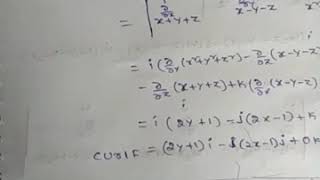 = | i
∂/∂x ∂/∂z
x+y+z x-y-z x²
= i(∂/∂y(x²+y²+z²) - ∂/∂z(x-y-z
- ∂/∂z(x+y+z) + k(∂/∂x(x-y-z)
= i(2y+1) - j(2x-1) + k
curl F = (2y+1)i - j(2x-1)j + 0k